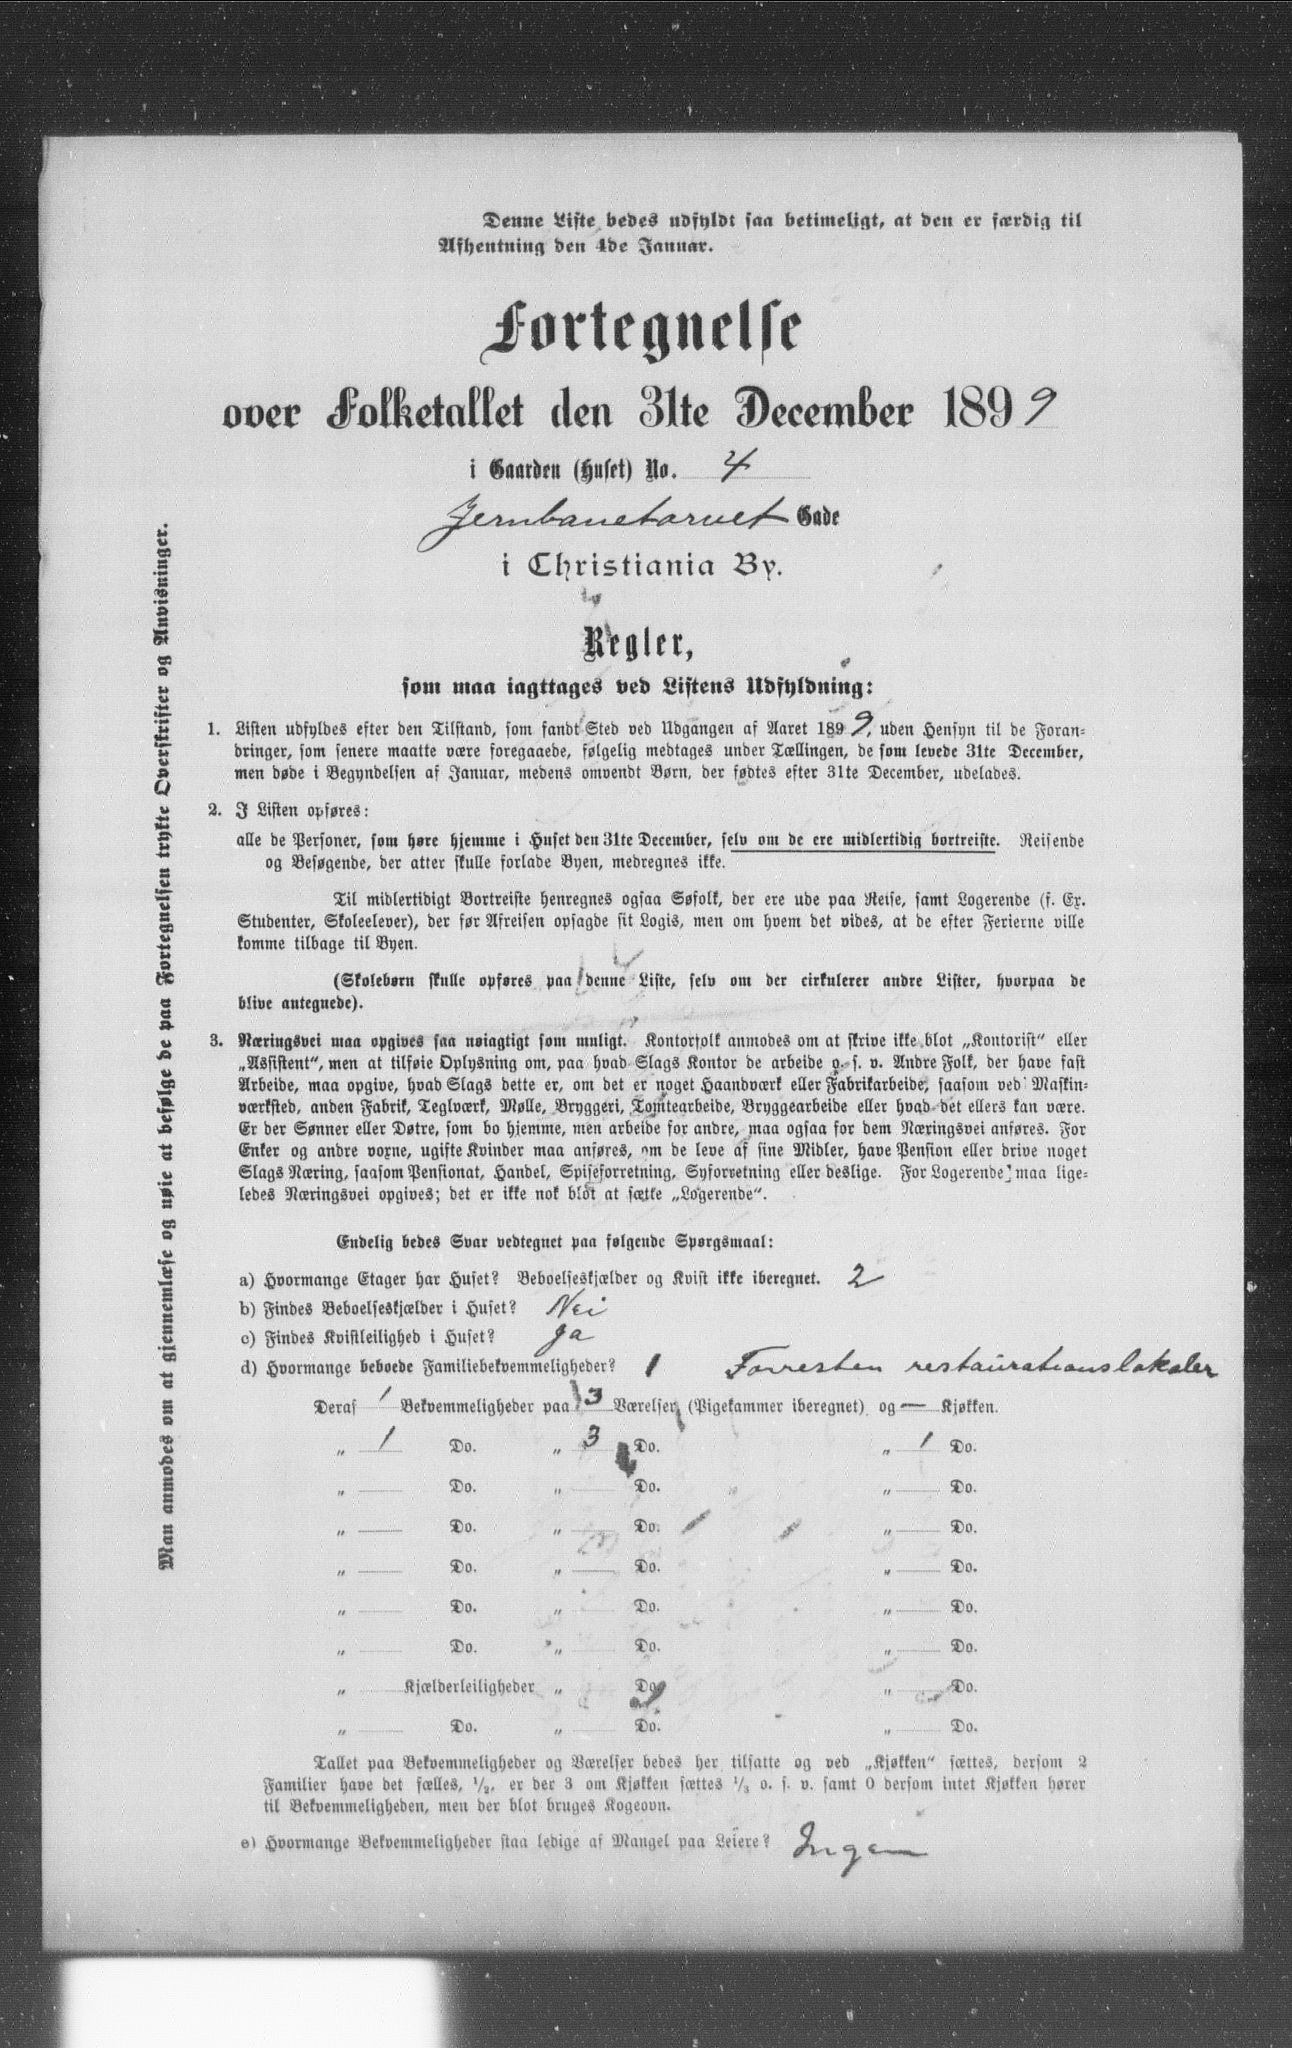 Denne Liste bedes udfyldt saa betimeligt, at den er færdig til
Afhentning den 4de Januar.
Fortegnelse
over Folketallet den 31te December 1899
i Gaarden (Huset) No. 4
Jernbanetorvet Gade
i Christiania By.
Regler,
som maa iagttages ved Listens Udfyldning:
1. Listen udfyldes efter den Tilstand, som fandt Sted ved Udgangen af Aaret 1899, uden Hensyn til de Foran-
dringer, som senere maatte være foregaaede, følgelig medtages under Tællingen, de som levede 31te December,
men døde i Begyndelsen af Januar, medens omvendt Børn, der fødtes efter 31te December, udelades.
2. I Listen opføres:
alle de Personer, som høre hjemme i Huset den 31te December, selv om de ere midlertidig bortreiste. Reisende
og Besøgende, der atter skulle forlade Byen, medregnes ikke.
Til midlertidigt Bortreiste henregnes ogsaa Søfolk, der ere ude paa Reise, samt Logerende (f. Ex.
Studenter, Skoleelever), der før Afreisen opsagde sit Logis, men om hvem det vides, at de efter Ferierne ville
komme tilbage til Byen.
(Skolebørn skulle opføres paa denne Liste, selv om der cirkulerer andre Lister, hvorpaa de
blive antegnede).
3. Næringsvei maa opgives saa nøiagtigt som muligt. Kontorfolk anmodes om at skrive ikke blot „Kontorist“ eller
„Assistent“, men at tilføie Oplysning om, paa hvad Slags Kontor de arbeide o. s. v. Andre Folk, der have fast
Arbeide, maa opgive, hvad Slags dette er, om det er noget Haandværk eller Fabrikarbeide, saasom ved Maskin-
værksted, anden Fabrik, Teglværk, Mølle, Bryggeri, Tomtearbeide, Bryggearbeide eller hvad det ellers kan være.
Er der Sønner eller Døtre, som bo hjemme, men arbeide for andre, maa ogsaa for dem Næringsvei anføres. For
Enker og andre voxne, ugifte Kvinder maa anføres, om de leve af sine Midler, have Pension eller drive noget
Slags Næring, saasom Pensionat, Handel, Spiseforretning, Syforretning eller deslige. For Logerende maa lige-
ledes Næringsvei opgives; det er ikke nok blot at sætte „Logerende“.
Endelig bedes Svar vedtegnet paa følgende Spørgsmaal:
a) Hvormange Etager har Huset? Beboelseskjælder og Kvist ikke iberegnet. 2
b) Findes Beboelseskjælder i Huset? Nei
c) Findes Kvistleilighed i Huset? Ja
d) Hvormange beboede Familiebekvemmeligheder? 1 Forresten restaurationslokaler
Deraf 1 Bekvemmeligheder paa 3 Værelser (Pigekammer iberegnet) og — Kjøkken.
„ 1 Do. „ 3 Do. „ 1 Do.
„ Do. „ Do. „ Do.
„ Do. „ Do. „ Do.
„ Do. „ Do. „ Do.
„ Do. „ Do. „ Do.
„ Do. „ Do. „ Do.
„ Kjælderleiligheder „ Do. „ Do.
„ Do. „ Do. „ Do.
Tallet paa Bekvemmeligheder og Værelser bedes her tilsatte og ved „Kjøkken“ sættes, dersom 2
Familier have det fælles, 1/2, er der 3 om Kjøkken sættes 1/3 o. s. v. samt 0 dersom intet Kjøkken hører
til Bekvemmeligheden, men der blot bruges Kogeovn.
e) Hvormange Bekvemmeligheder staa ledige af Mangel paa Leiere? Ingen
Man anmodes om at gjennemlæse og nøie at befølge de paa Fortegnelsen trykte Overskrifter og Anvisninger.